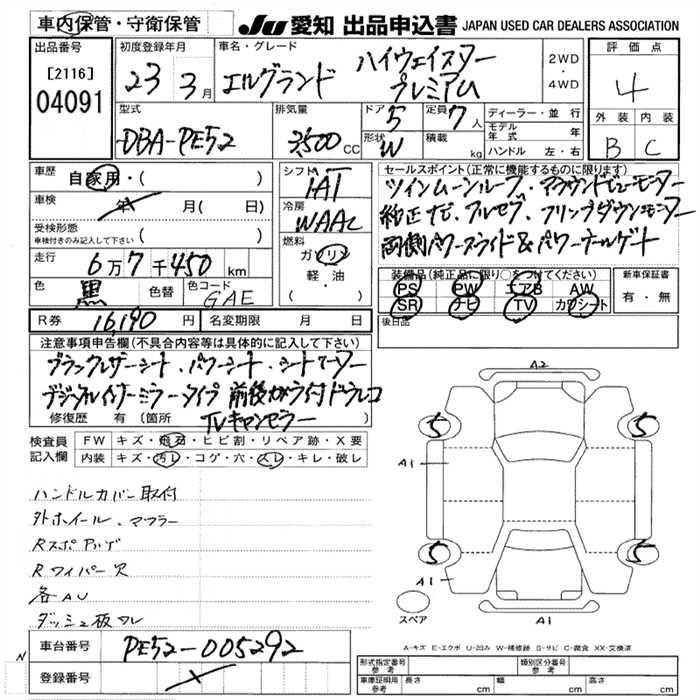 車内保管・守衛保管
JU 愛知 出品申込書 JAPAN USED CAR DEALERS ASSOCIATION
出品番号
[2116]
04091
初度登録年月
23 3月
車名・グレード
エルグランド
ハイウェイスター
プレミアム
2WD
・
4WD
評価点
4
外装 内装
B C
型式
DBA-PE52
排気量
3500 CC
ドア 5
形状 W
定員 7 人
積載 kg
ディーラー・並行
モデル年式 年
ハンドル 左・右
車歴
自家用・( )
車検
年 月( 日)
受検形態
車検付きのみ記入して下さい ( )
走行
6万7千450 km
色
黒
色替
色コード
GAE
シフト
IAT
冷房
WAAC
燃料
ガソリン
軽・油
( )
セールスポイント(正常に機能するものに限ります)
ツインムーンルーフ・アラウンドビューモニター
純正ナビ、フルセグ、フリップダウンモニター
両側パワースライド&パワーテールゲート
装備品(純正品に限り○をつけてください)
PS PW エアB AW
SR ナビ TV カワシート
新車保証書
有・無
後日品
R券 16,190 円
名変期限 月 日
注意事項申告欄(不具合内容等は具体的に記入して下さい)
ブラックレザーシート、パワーシート、シートヒーター
デジタルインナーミラータイプ 前後カメラ付ドラレコ
TVキャンセラー
修復歴 有 (箇所
検査員
記入欄
FW キズ・飛石・ヒビ割・リペア跡・X要
内装 キズ・汚レ・コゲ・穴・スレ・キレ・破レ
ハンドルカバー取付
外ホイール、マフラー
Rスポ
Rワイパー欠
各AU
ダッシュ板ワレ
A2
5 5
A1 A1
5 5
A1
A1
スペア
A-キズ E-エクボ U-凹み W-補修跡 S-サビ C-腐食 XX-交換済
車台番号
PE52-005292
N
登録番号
形式指定番号
参考
類別区分番号
参考
車庫証明用
参考
長さ cm 幅 cm 高さ cm